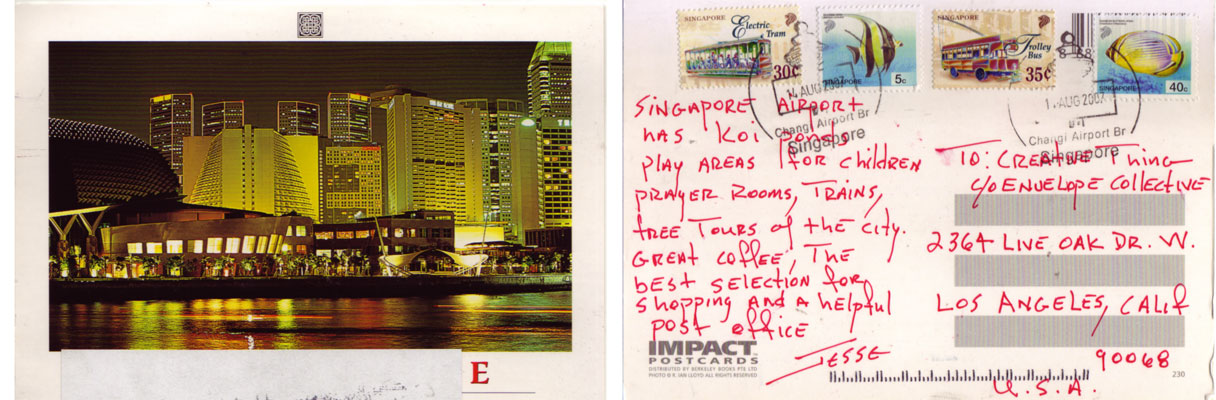 E
SINGAPORE
Electric
Tram
30c
SINGAPORE
5c
SINGAPORE
Trolley
Bus
35c
SINGAPORE
40c
14 AUG 2007
Changi Airport Br
Singapore
AUG 2007
Changi Airport Br
Singapore
SINGAPORE AIRPORT
HAS KOI PONDS
PLAY AREAS FOR CHILDREN
PRAYER ROOMS, TRAINS,
FREE TOURS of the CITY.
GREAT COFFEE, THE
BEST SELECTION FOR
SHOPPING AND A HELPFUL
POST OFFICE
JESSE
TO: CREATIVE Thing
C/O ENVELOPE COLLECTIVE
2364 LIVE OAK DR. W.
LOS ANGELES, CALIF
90068
U.S.A.
IMPACT
POSTCARDS
DISTRIBUTED BY BERKELEY BOOKS PTE LTD
PHOTO © R. IAN LLOYD ALL RIGHTS RESERVED
230